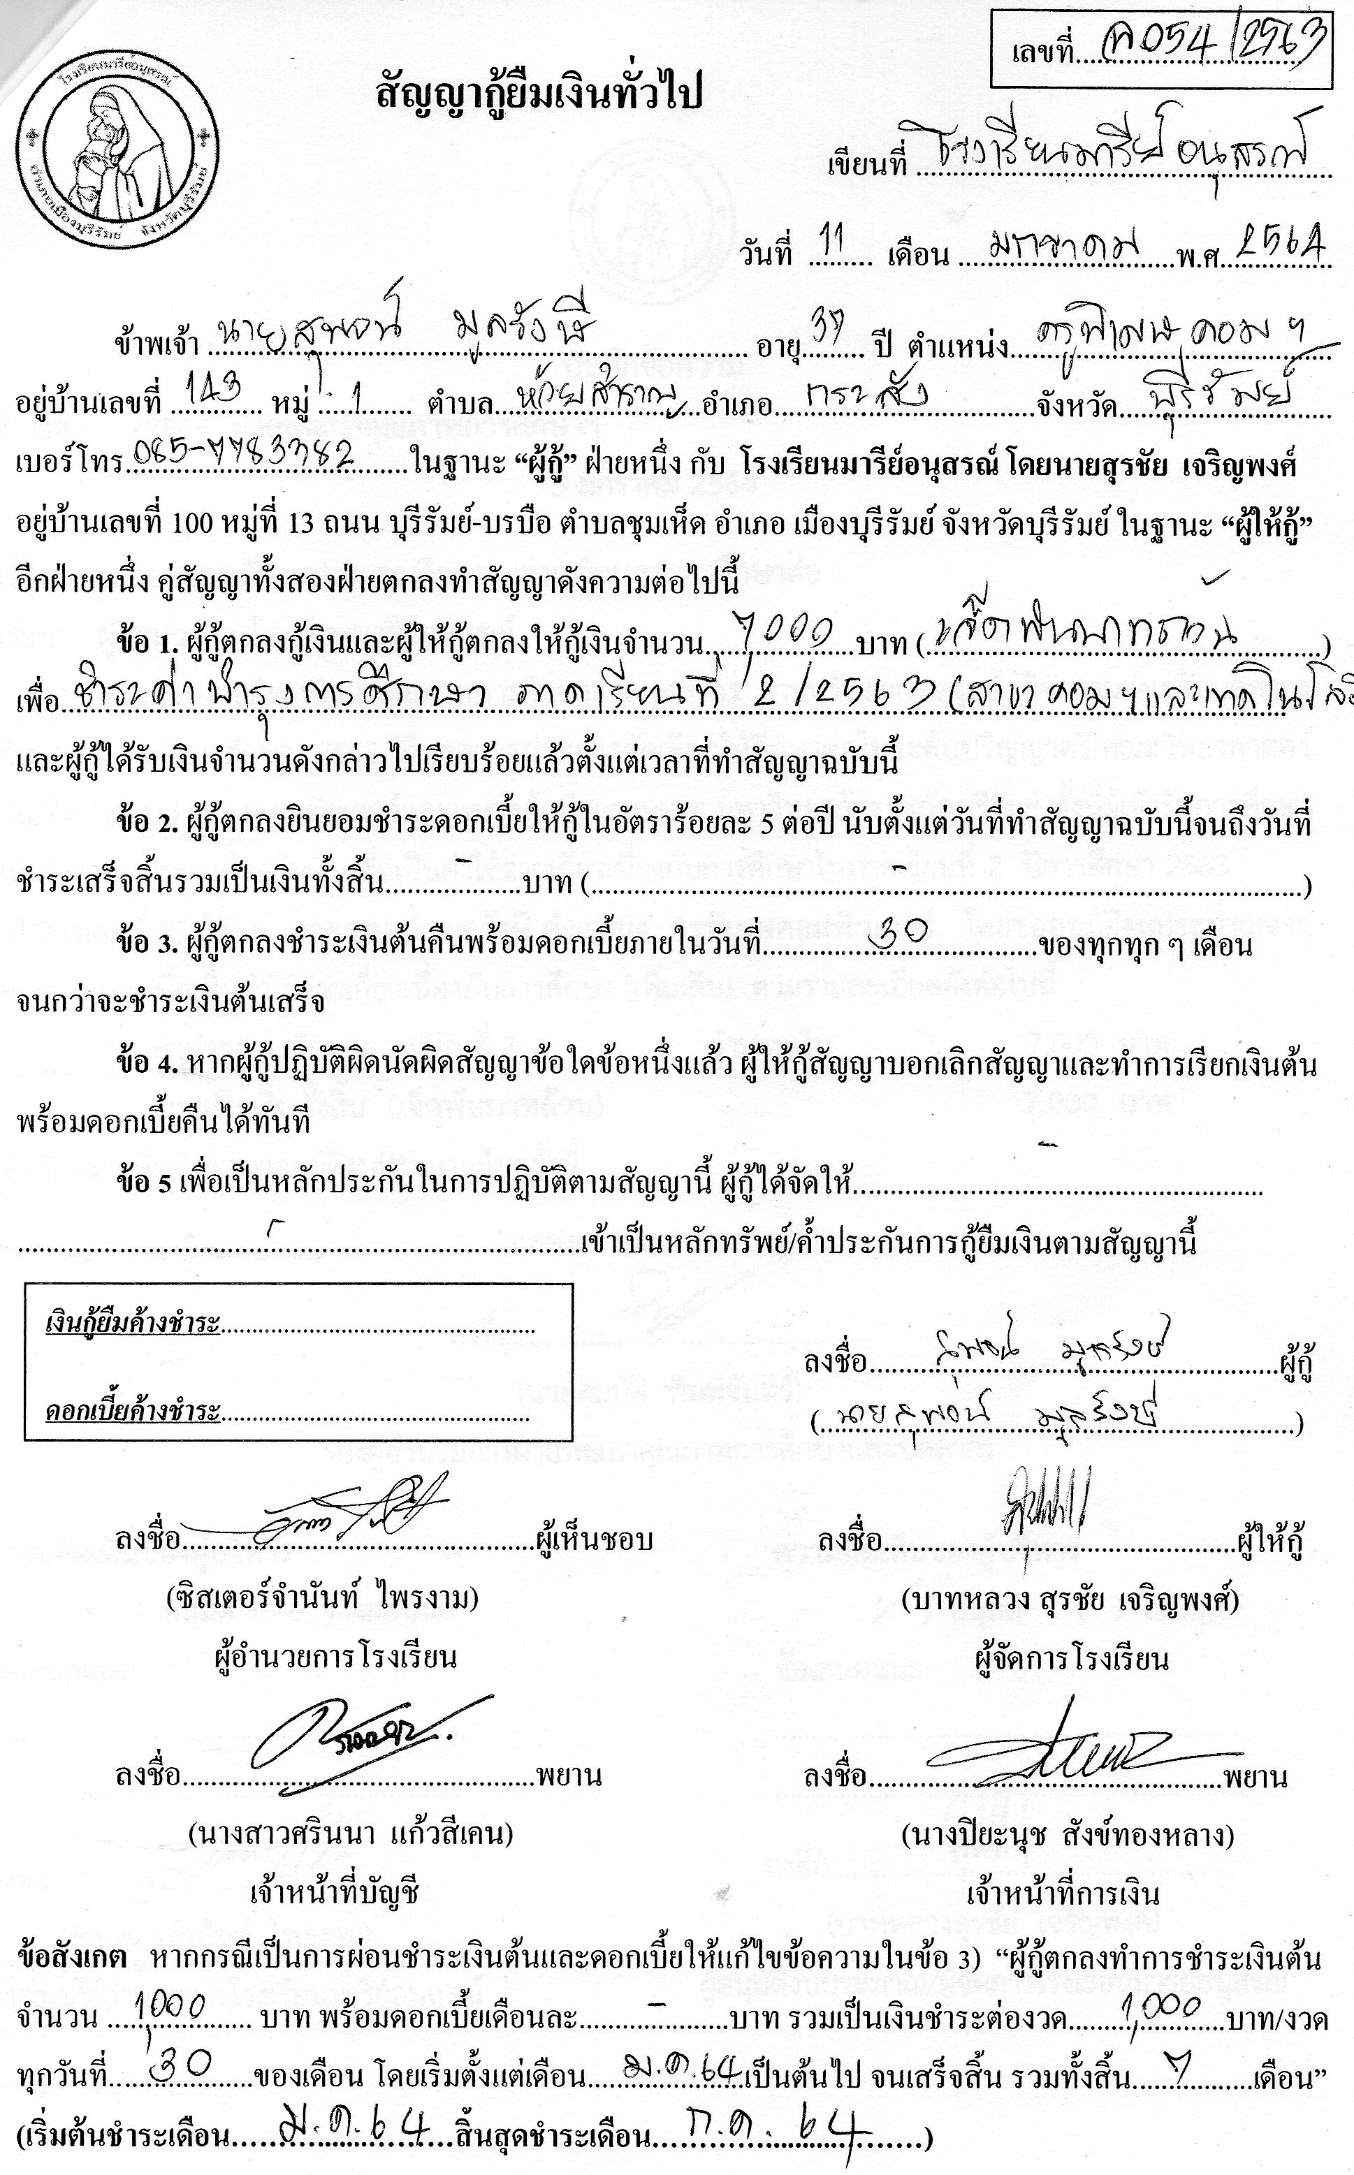 เลขที่ ค 054/2563
โรงเรียนมารีย์อนุสรณ์
อำเภอเมืองบุรีรัมย์ จังหวัดบุรีรัมย์
สัญญากู้ยืมเงินทั่วไป
เขียนที่ โรงเรียนมารีย์อนุสรณ์
วันที่ 11 เดือน มกราคม พ.ศ. 2564
ข้าพเจ้า นายสุพจน์ มูลรังษี อายุ 37 ปี ตำแหน่ง ครูพิเศษคอมฯ
อยู่บ้านเลขที่ 143 หมู่ 1 ตำบล ห้วยสำราญ อำเภอ กระสัง จังหวัด บุรีรัมย์
เบอร์โทร 085-7783382 ในฐานะ “ผู้กู้” ฝ่ายหนึ่ง กับ โรงเรียนมารีย์อนุสรณ์ โดยนายสุรชัย เจริญพงศ์
อยู่บ้านเลขที่ 100 หมู่ที่ 13 ถนน บุรีรัมย์-บรบือ ตำบลชุมเห็ด อำเภอ เมืองบุรีรัมย์ จังหวัดบุรีรัมย์ ในฐานะ “ผู้ให้กู้”
อีกฝ่ายหนึ่ง คู่สัญญาทั้งสองฝ่ายตกลงทำสัญญาดังความต่อไปนี้
ข้อ 1. ผู้กู้ตกลงกู้เงินและผู้ให้กู้ตกลงให้กู้เงินจำนวน 7,000 บาท (เจ็ดพันบาทถ้วน)
เพื่อ ชำระค่าบำรุงการศึกษา ภาคเรียนที่ 2/2563 (สาขาคอมฯและเทคโนโลยี
และผู้กู้ได้รับเงินจำนวนดังกล่าวไปเรียบร้อยแล้วตั้งแต่เวลาที่ทำสัญญาฉบับนี้
ข้อ 2. ผู้กู้ตกลงยินยอมชำระดอกเบี้ยให้กู้ในอัตราร้อยละ 5 ต่อปี นับตั้งแต่วันที่ทำสัญญาฉบับนี้จนถึงวันที่
ชำระเสร็จสิ้นรวมเป็นเงินทั้งสิ้น - บาท ( - )
ข้อ 3. ผู้กู้ตกลงชำระเงินต้นคืนพร้อมดอกเบี้ยภายในวันที่ 30 ของทุกทุก ๆ เดือน
จนกว่าจะชำระเงินต้นเสร็จ
ข้อ 4. หากผู้กู้ปฏิบัติผิดนัดผิดสัญญาข้อใดข้อหนึ่งแล้ว ผู้ให้กู้สัญญาบอกเลิกสัญญาและทำการเรียกเงินต้น
พร้อมดอกเบี้ยคืนได้ทันที
ข้อ 5 เพื่อเป็นหลักประกันในการปฏิบัติตามสัญญานี้ ผู้กู้ได้จัดให้ -
- เข้าเป็นหลักทรัพย์/ค้ำประกันการกู้ยืมเงินตามสัญญานี้
เงินกู้ยืมค้างชำระ
ดอกเบี้ยค้างชำระ
ลงชื่อ สุพจน์ มูลรังษี ผู้กู้
(นายสุพจน์ มูลรังษี)
ลงชื่อ ผู้เห็นชอบ ลงชื่อ ผู้ให้กู้
(ซิสเตอร์จำนันท์ ไพรงาม) (บาทหลวง สุรชัย เจริญพงศ์)
ผู้อำนวยการโรงเรียน ผู้จัดการโรงเรียน
ลงชื่อ พยาน ลงชื่อ พยาน
(นางสาวศรินนา แก้วสีเคน) (นางปิยะนุช สังข์ทองหลาง)
เจ้าหน้าที่บัญชี เจ้าหน้าที่การเงิน
ข้อสังเกต หากกรณีเป็นการผ่อนชำระเงินต้นและดอกเบี้ยให้แก้ไขข้อความในข้อ 3) “ผู้กู้ตกลงทำการชำระเงินต้น
จำนวน 1,000 บาท พร้อมดอกเบี้ยเดือนละ - บาท รวมเป็นเงินชำระต่องวด 1,000 บาท/งวด
ทุกวันที่ 30 ของเดือน โดยเริ่มตั้งแต่เดือน ม.ค.64 เป็นต้นไป จนเสร็จสิ้น รวมทั้งสิ้น 7 เดือน”
(เริ่มต้นชำระเดือน ม.ค. 64 สิ้นสุดชำระเดือน ก.ค. 64)